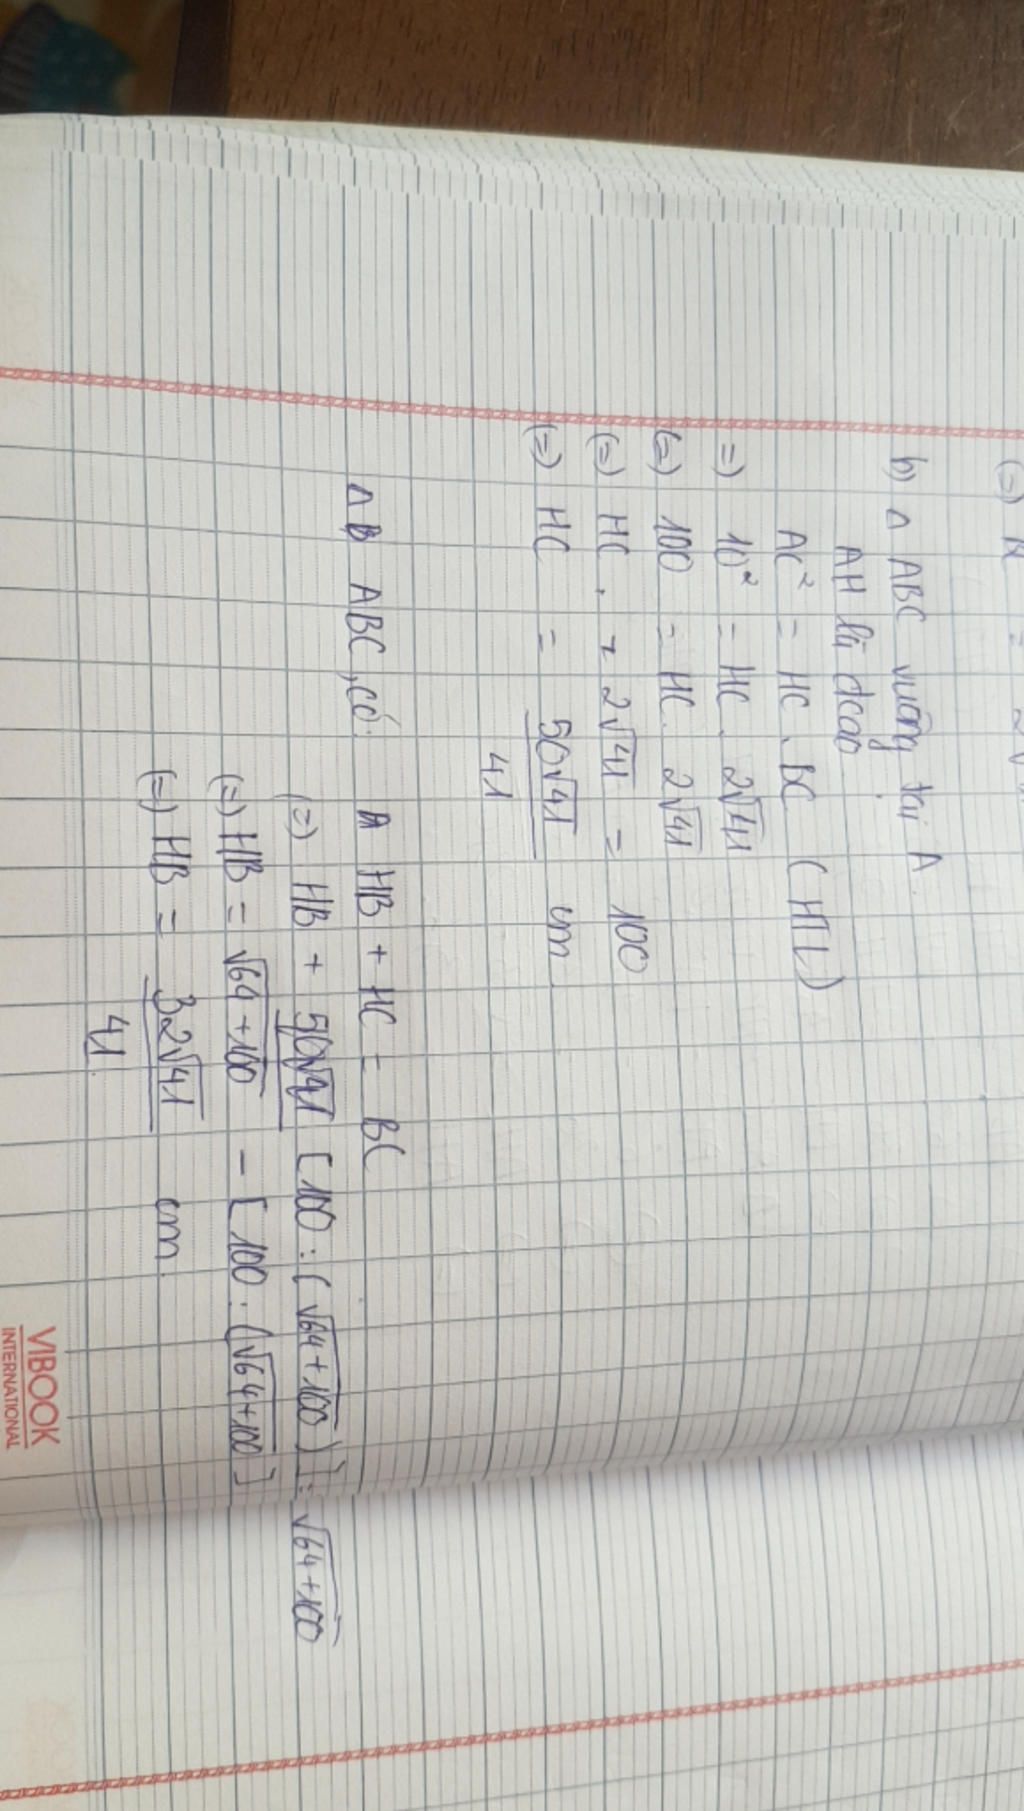 b) Δ ABC vuông tại A.
AH là đcao
AC² = HC . BC (HTL)
=) 10² = HC . 2√41
(=) 100 = HC . 2√41
(=) HC . 2√41 = 100
(=) HC = 50√41/41 cm
Δ ABC, có: HB + HC = BC
(=) HB + [100 : (√64+100)] = √64+100
(=) HB = √64+100 - [100 : (√64+100]
(=) HB = 32√41/41 cm.
VIBOOK
INTERNATIONAL